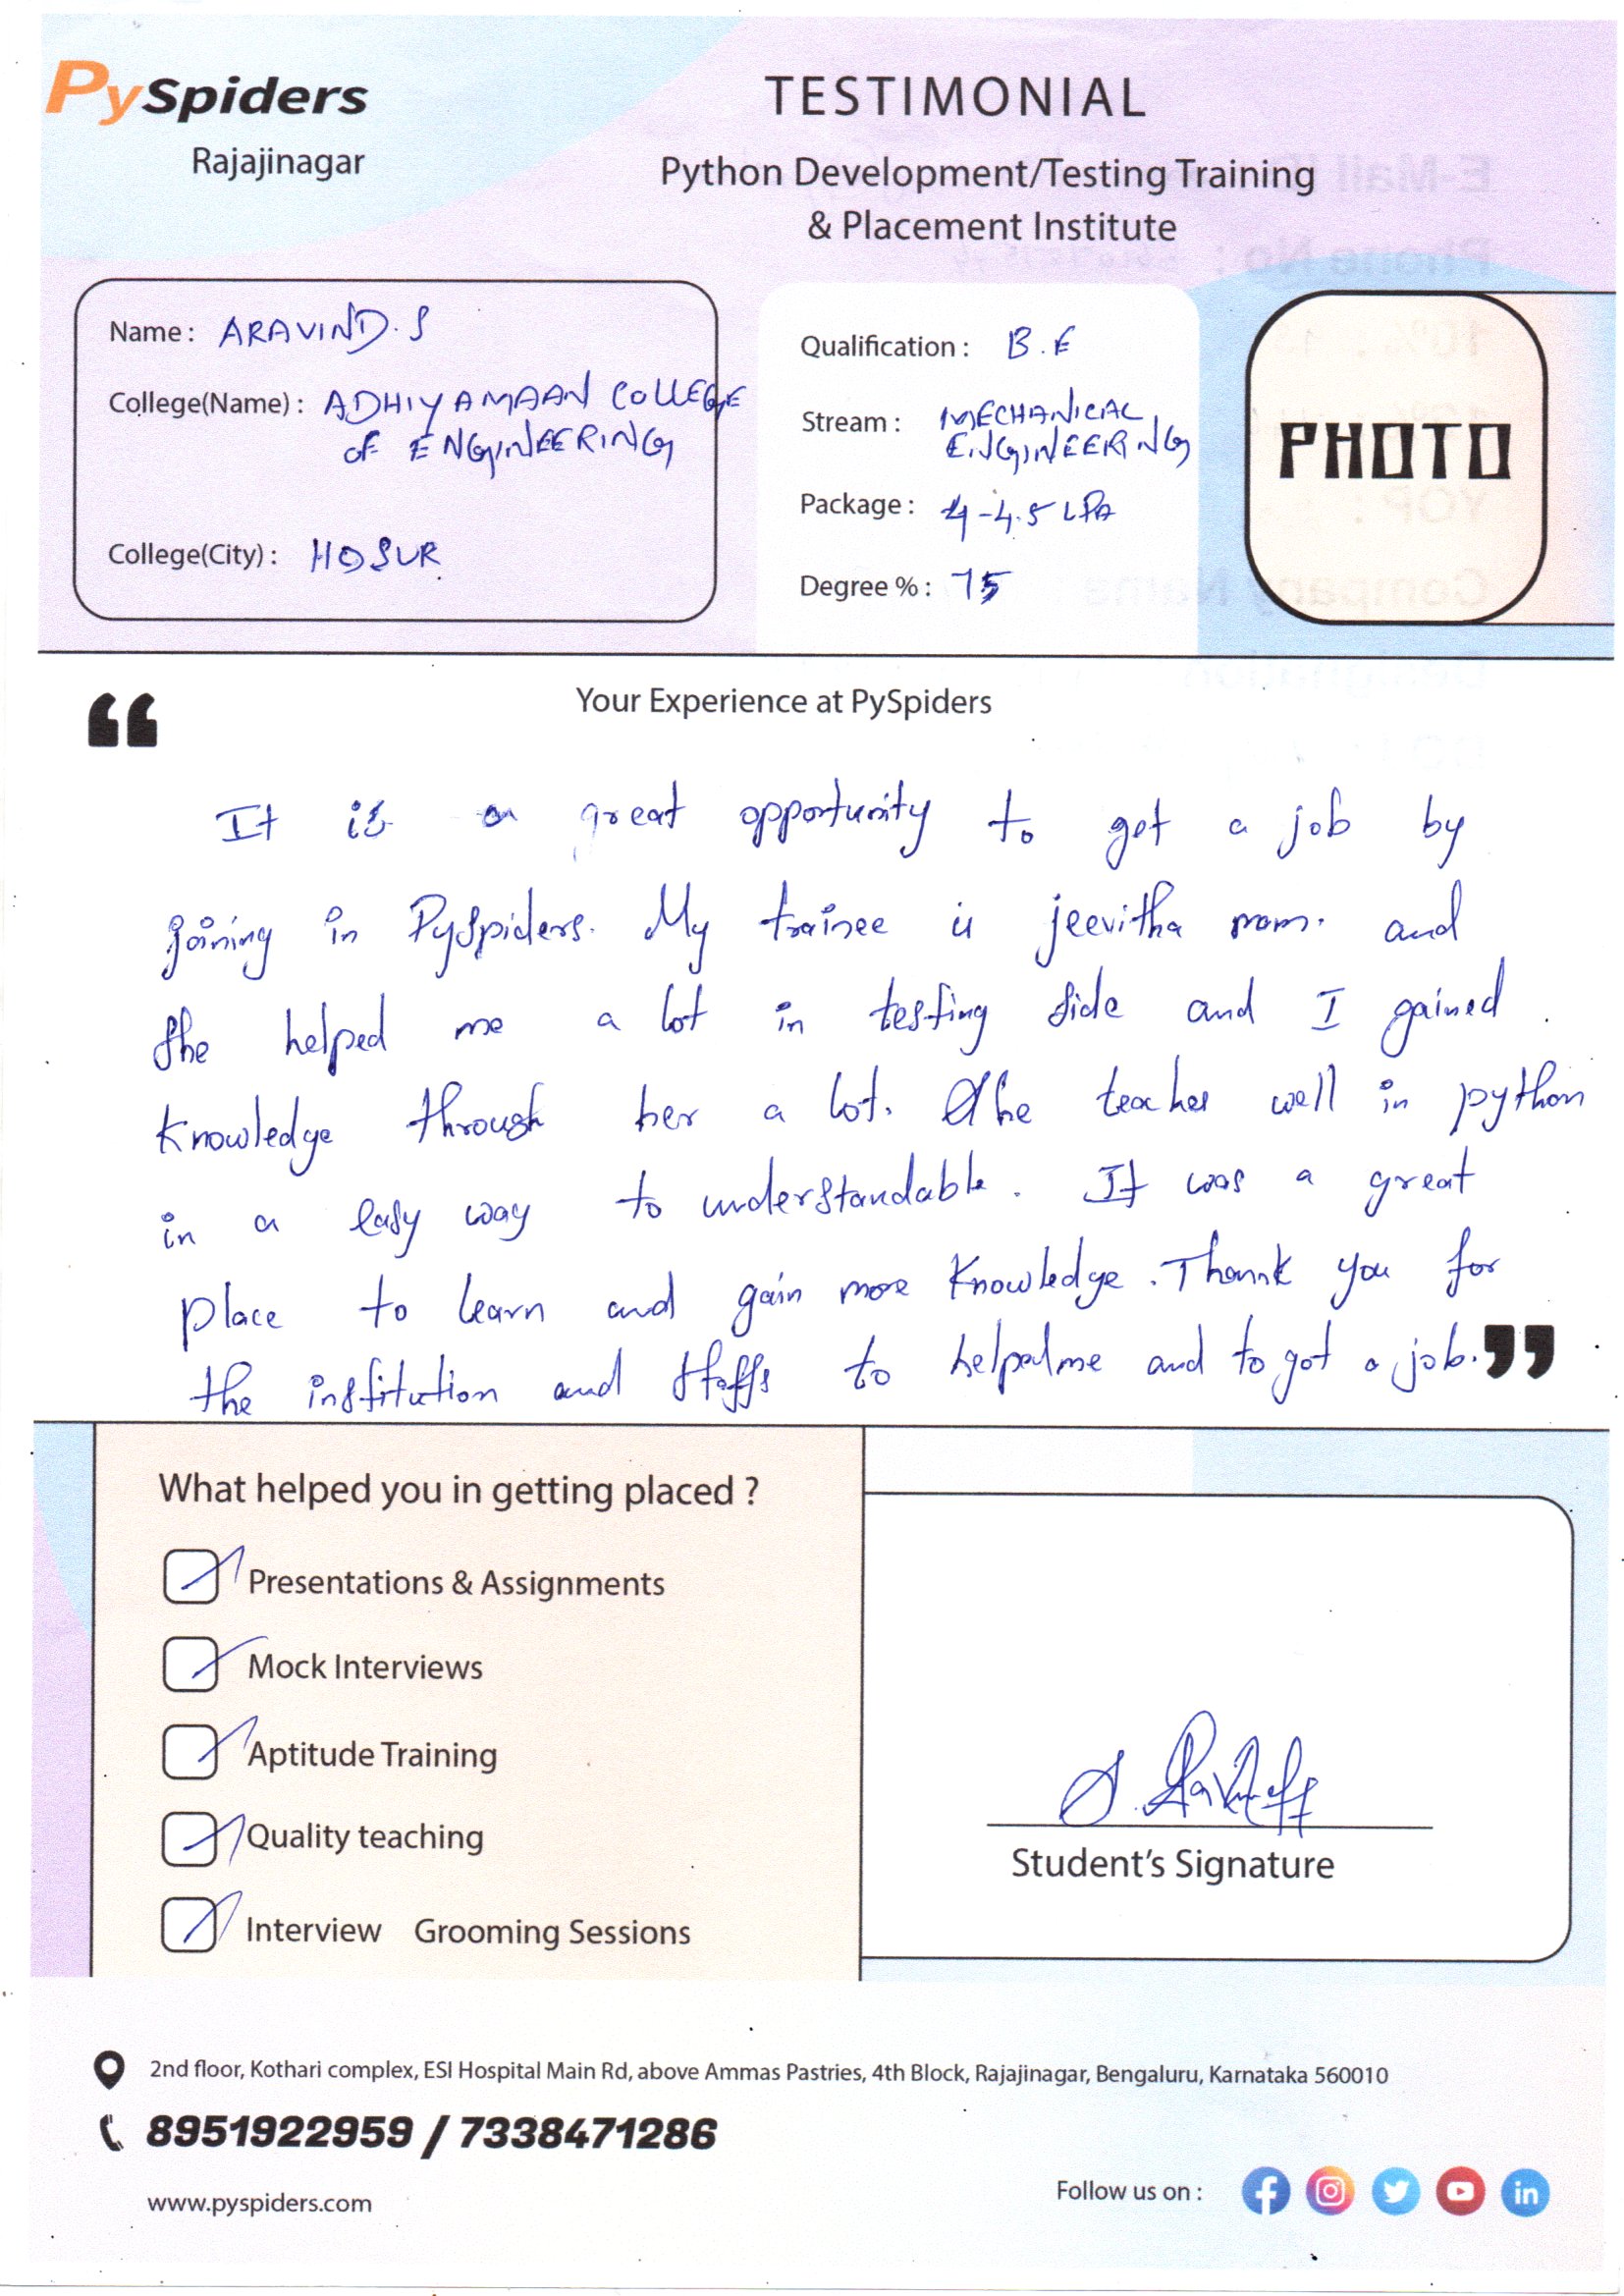 PySpiders
Rajajinagar
TESTIMONIAL
Python Development/Testing Training
& Placement Institute
Name : ARAVIND.S
College(Name) : ADHIYAMAAN COLLEGE
OF ENGINEERING
College(City) : HOSUR
Qualification : B.E
Stream : MECHANICAL
ENGINEERING
Package : 4-4.5 LPA
Degree % : 75
PHOTO
Your Experience at PySpiders
It is a great opportunity to get a job by
joining in PySpiders. My trainee is jeevitha mam. and
she helped me a lot in testing side and I gained
knowledge through her a lot. She teaches well in python
in a easy way to understandable. It was a great
place to learn and gain more knowledge. Thank you for
the institution and staffs to helped me and to got a job.
What helped you in getting placed ?
Presentations & Assignments
Mock Interviews
Aptitude Training
Quality teaching
Interview Grooming Sessions
Student's Signature
2nd floor, Kothari complex, ESI Hospital Main Rd, above Ammas Pastries, 4th Block, Rajajinagar, Bengaluru, Karnataka 560010
8951922959 / 7338471286
www.pyspiders.com
Follow us on :